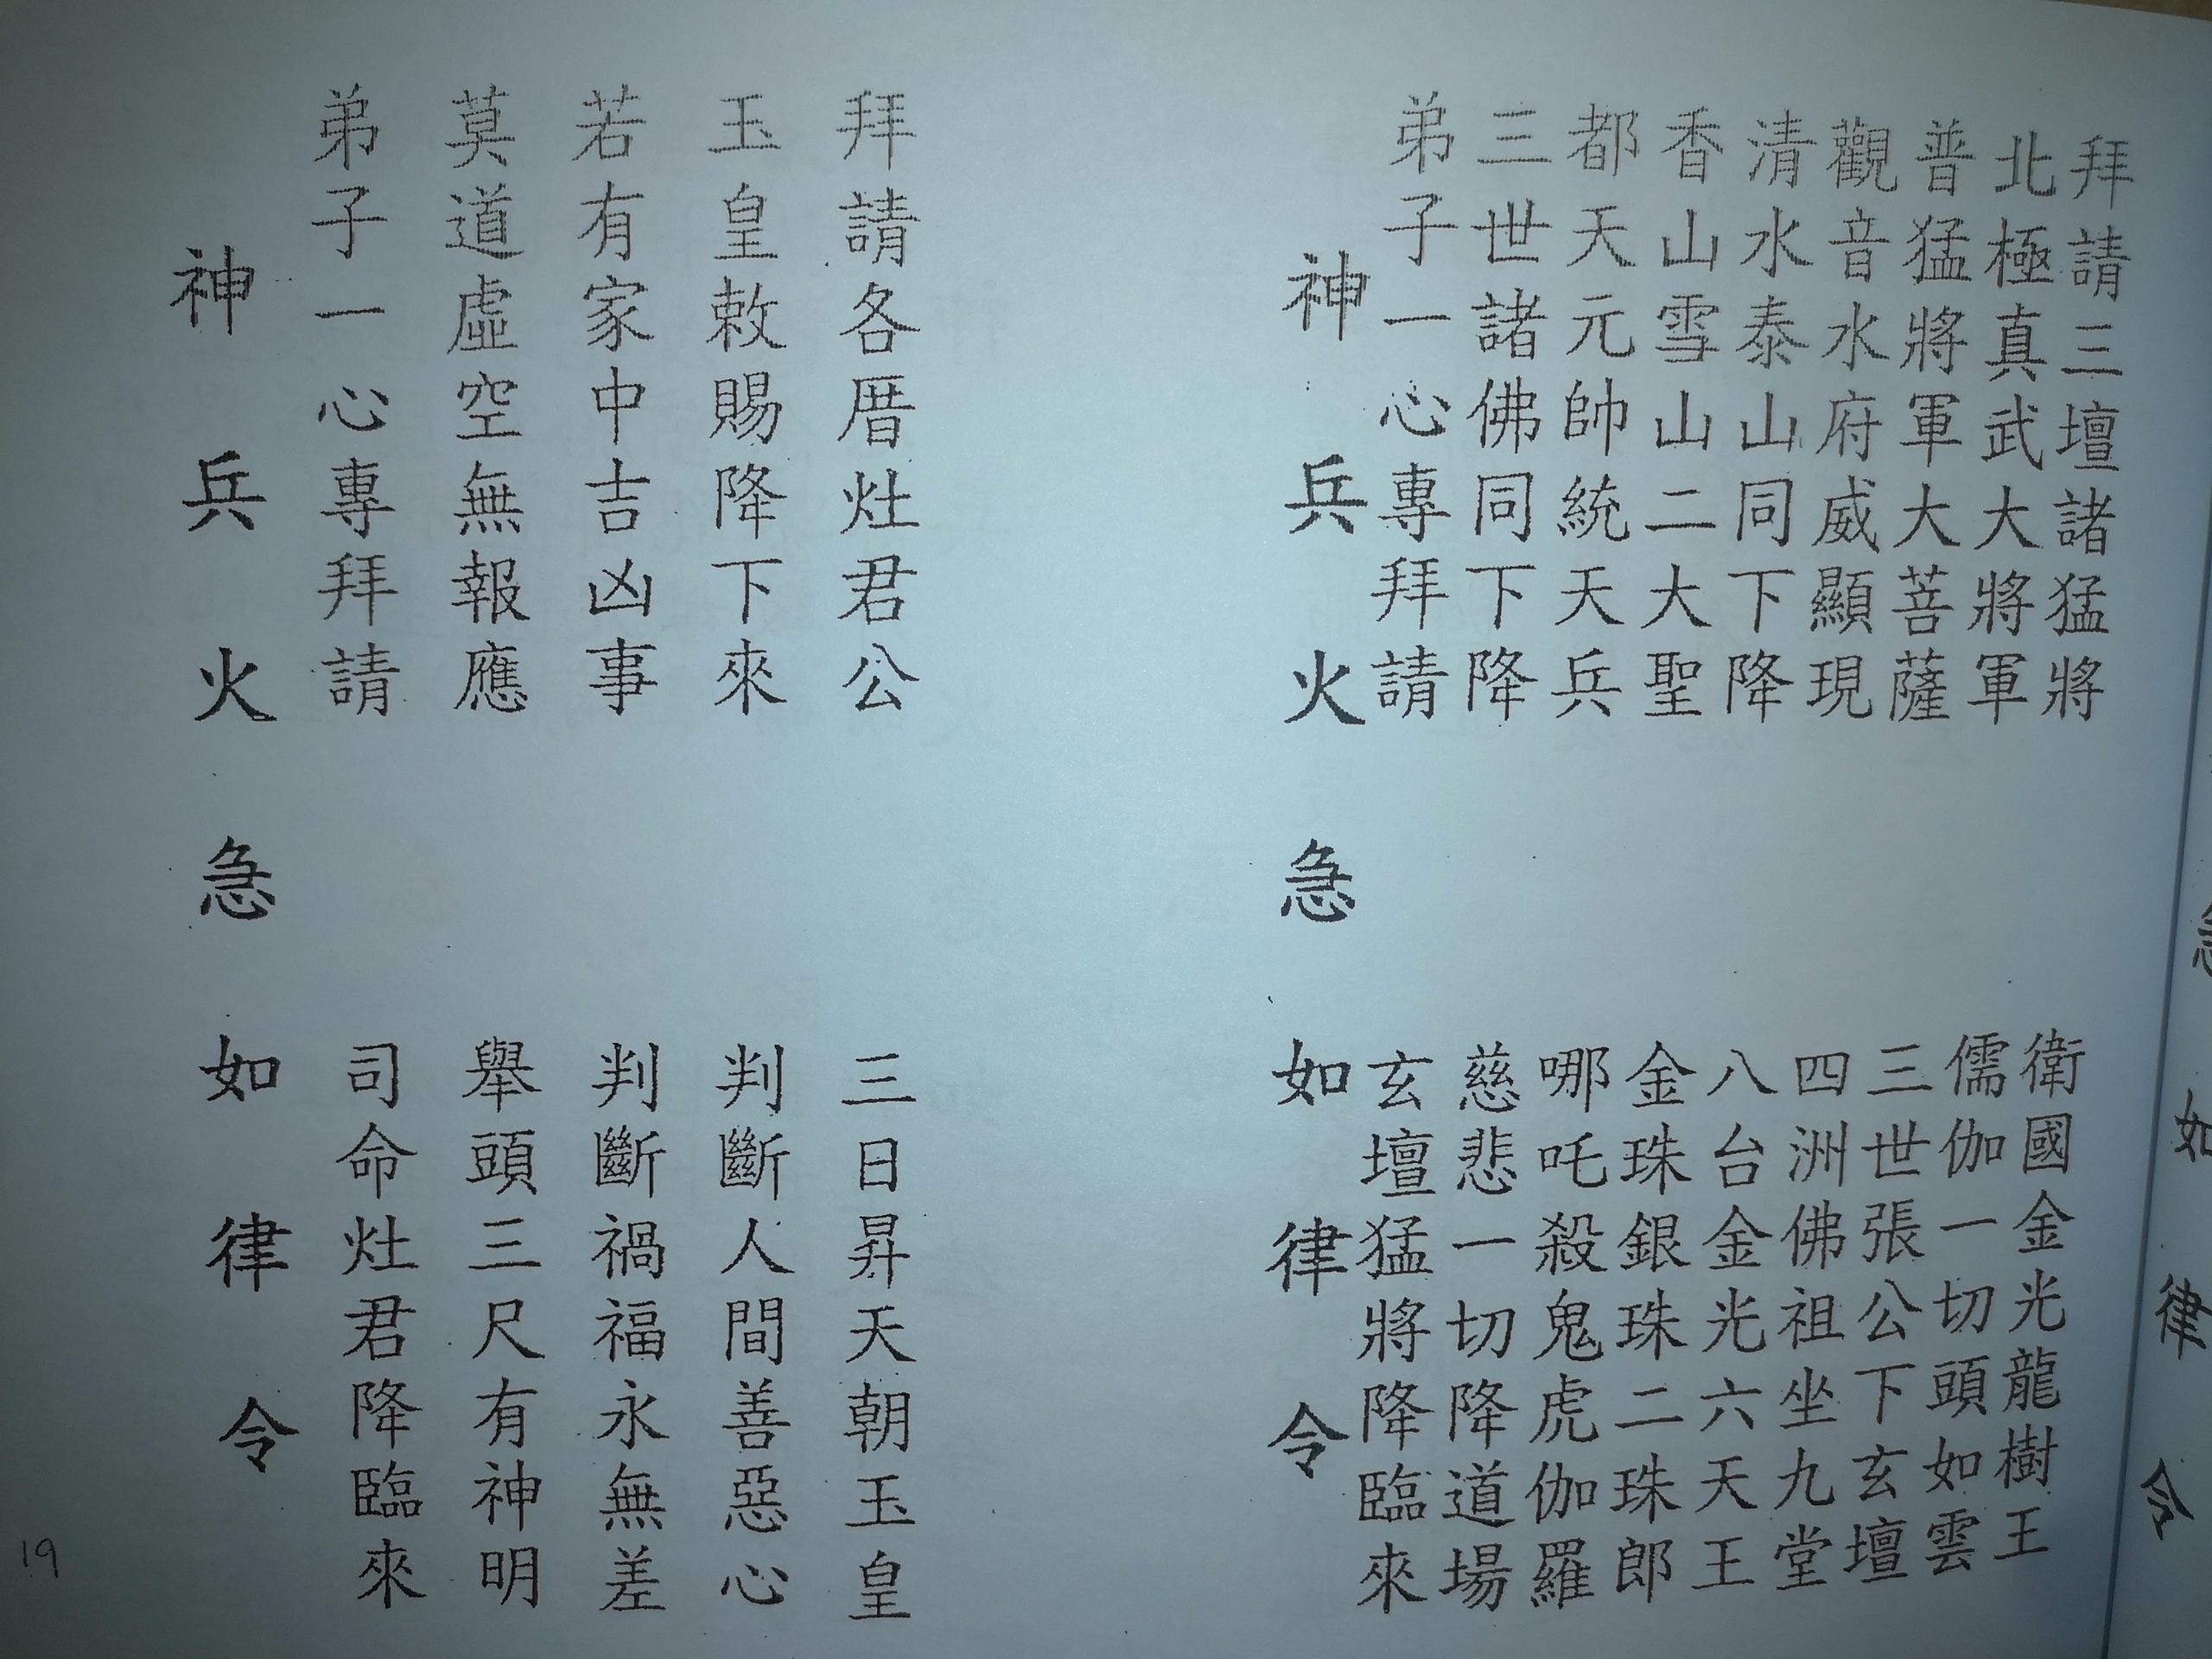 急如律令
拜請三壇諸猛將 衛國金光龍樹王
北極真武大將軍 儒伽一切頭如雲
普猛將軍大菩薩 三世張公下玄壇
觀音水府威顯現 四洲佛祖坐九堂
清水泰山同下降 八台金光六天王
香山雪山二大聖 金珠銀珠二珠郎
都天元帥統天兵 哪吒殺鬼虎伽羅
三世諸佛同下降 慈悲一切降道場
弟子一心專拜請 玄壇猛將降臨來
神兵火急如律令
拜請各厝灶君公 三日昇天朝玉皇
玉皇敕賜降下來 判斷人間善惡心
若有家中吉凶事 判斷禍福永無差
莫道虛空無報應 舉頭三尺有神明
弟子一心專拜請 司命灶君降臨來
神兵火急如律令
19